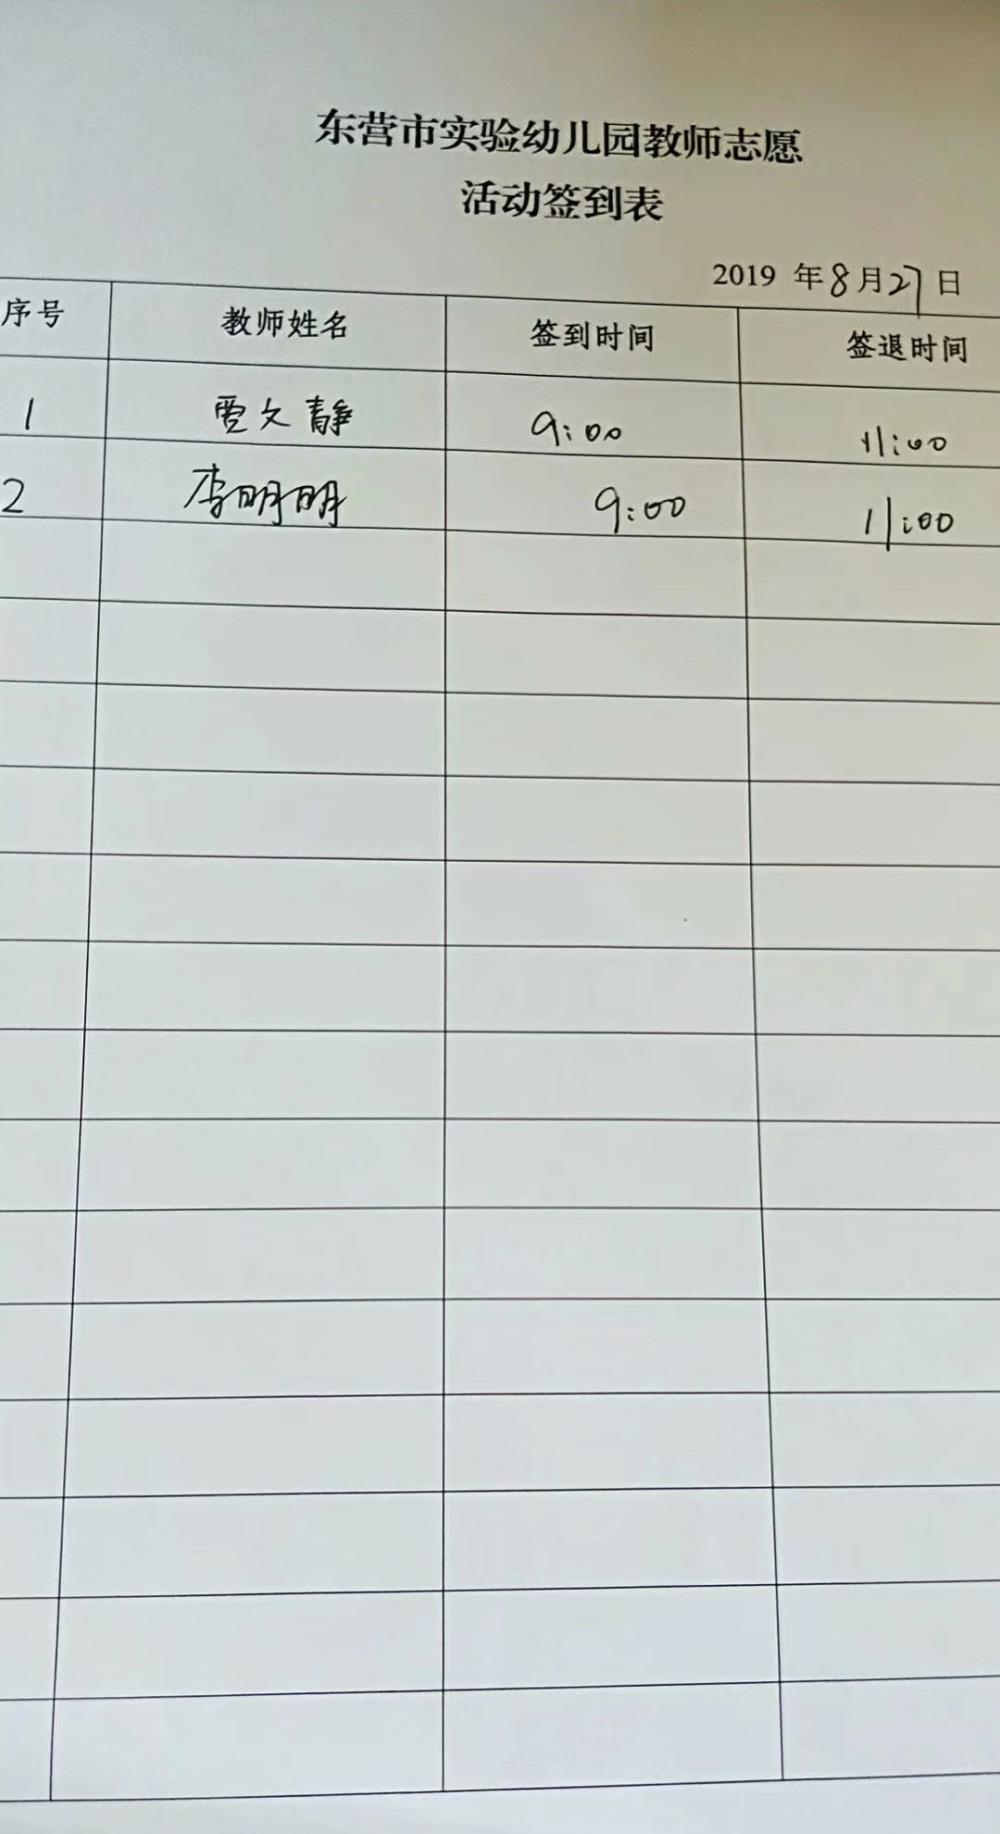 东营市实验幼儿园教师志愿
活动签到表
2019 年8月27日
序号 教师姓名 签到时间 签退时间
1 贾文静 9:00 11:00
2 李明明 9:00 11:00